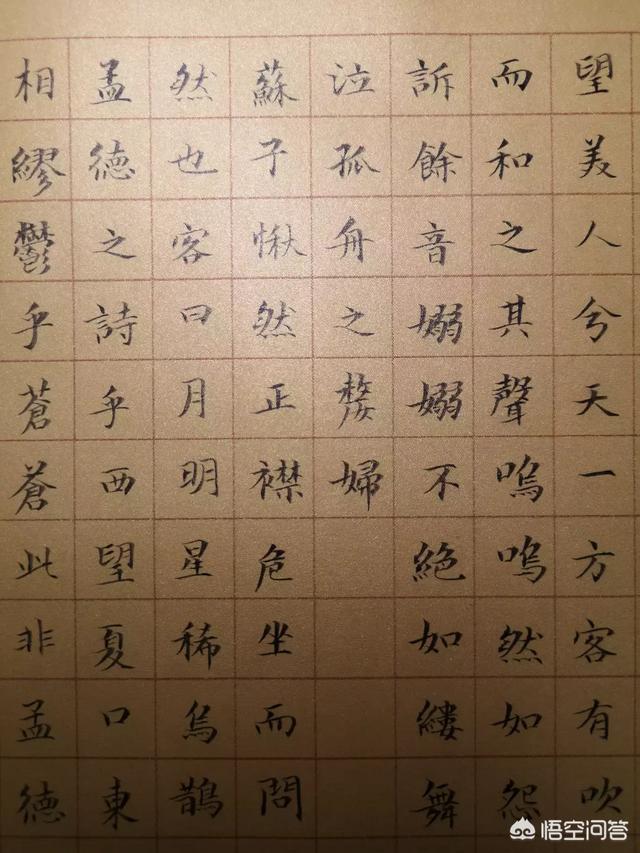 望美人兮天一方客有吹
而和之其聲嗚嗚然如怨
訴餘音嫋嫋不絶如縷舞
泣孤舟之嫠婦
蘇子愀然正襟危坐而問
然也客曰月明星稀烏鵲
孟德之詩乎西望夏口東
相繆鬱乎蒼蒼此非孟德
悟空问答